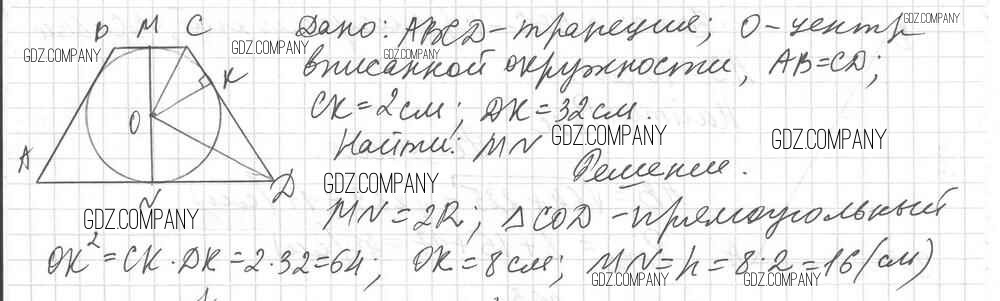 B M C Дано: ABCD - трапеция; O - центр
вписанной окружности, AB = CD;
K
CK = 2 см; DK = 32 см.
O
Найти: MN
A Решение.
N D
MN = 2R; △COD - прямоугольный
OK² = CK · DK = 2 · 32 = 64; OK = 8 см; MN = h = 8 · 2 = 16 (см)
GDZ.COMPANY
GDZ.COMPANY
GDZ.COMPANY
GDZ.COMPANY
GDZ.COMPANY
GDZ.COMPANY
GDZ.COMPANY
GDZ.COMPANY
GDZ.COMPANY
GDZ.COMPANY